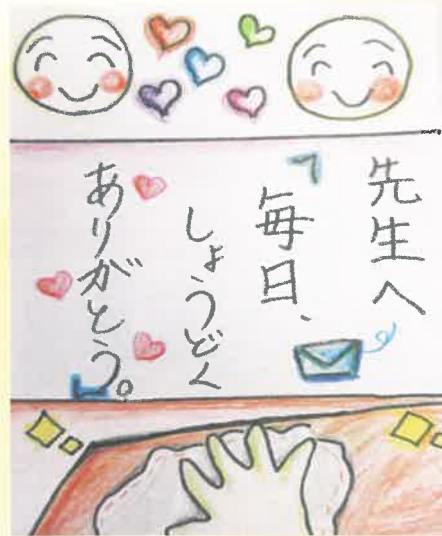 先生へ
毎日、
しょうどく
ありがとう。